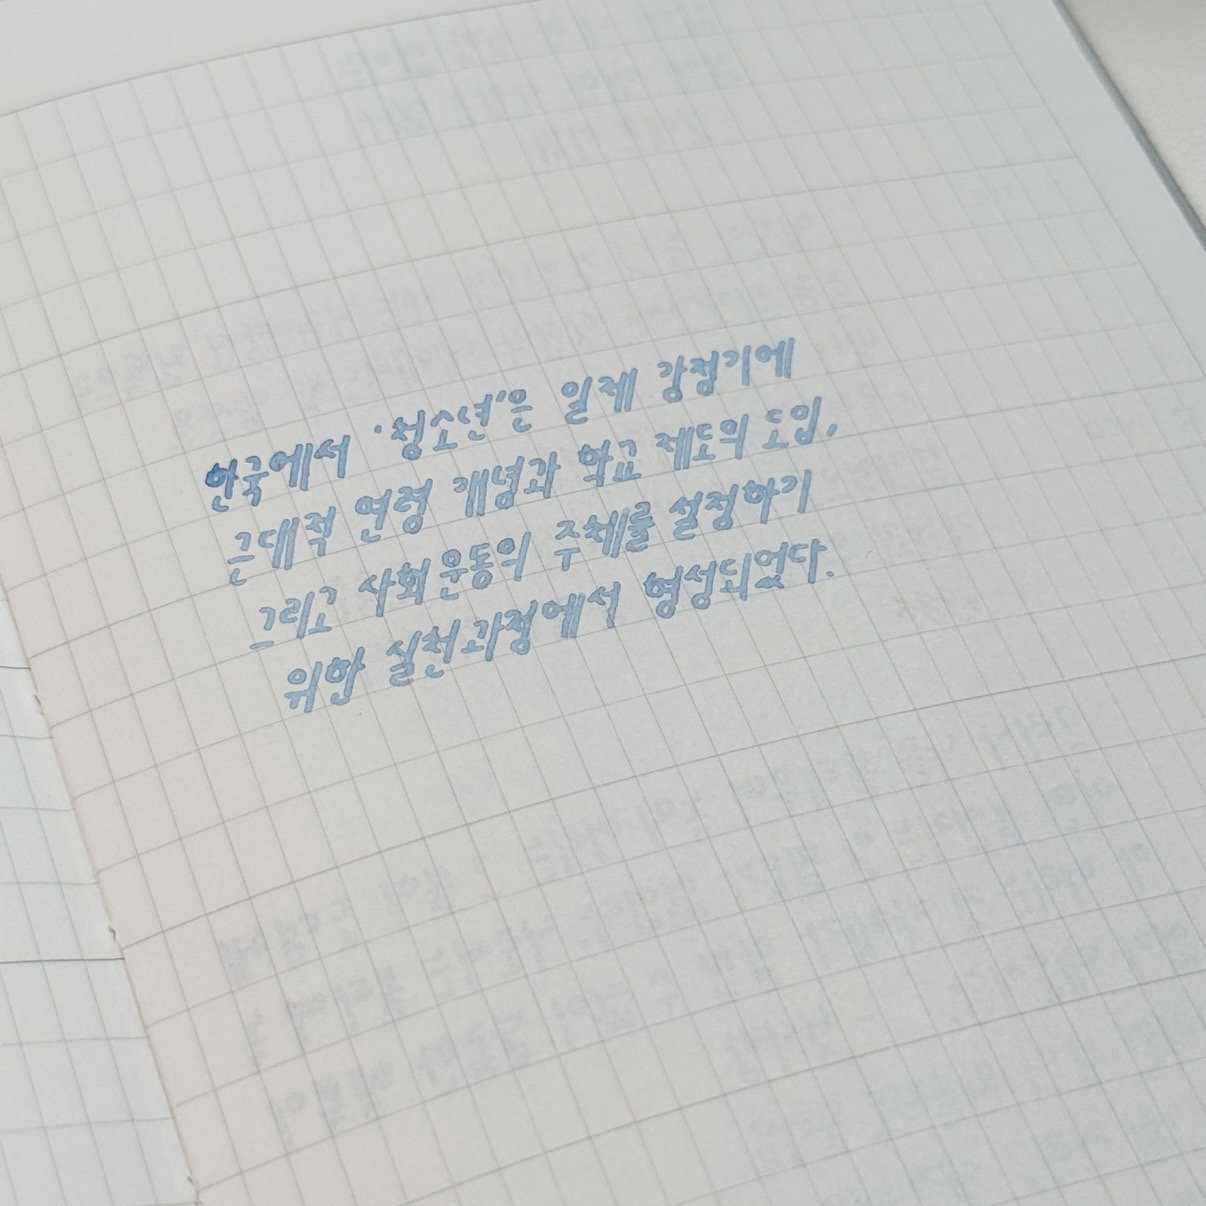 한국에서 '청소년'은 일제 강점기에
근대적 연령 개념과 학교 제도의 도입,
그리고 사회운동의 주체를 설정하기
위한 실천과정에서 형성되었다.